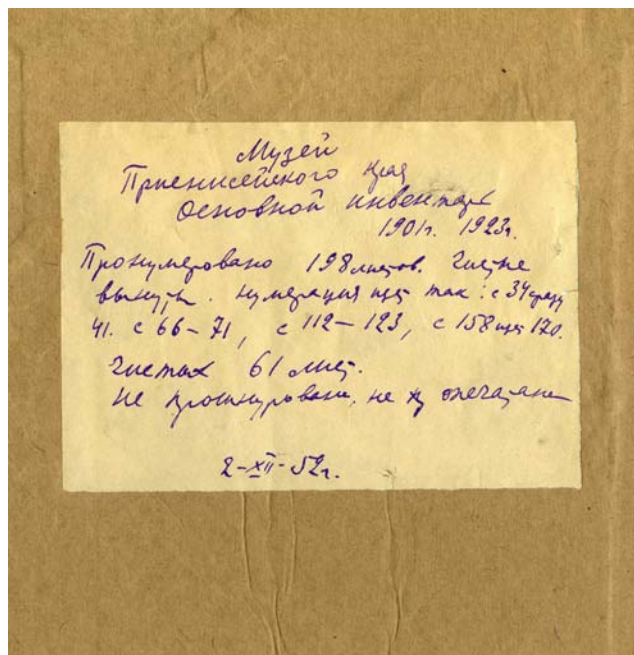 Музей
Приенисейского края
Основной инвентарь
1901г. 1923г.
Пронумеровано 198 листов. Чистые
вынуты. Нумерация идет так: с 34 сразу
41. с 66-71, с 112-123, с 158 идет 170.
Чистых 61 лист.
Не прошнурован, не опечатан
2-XII-52г.